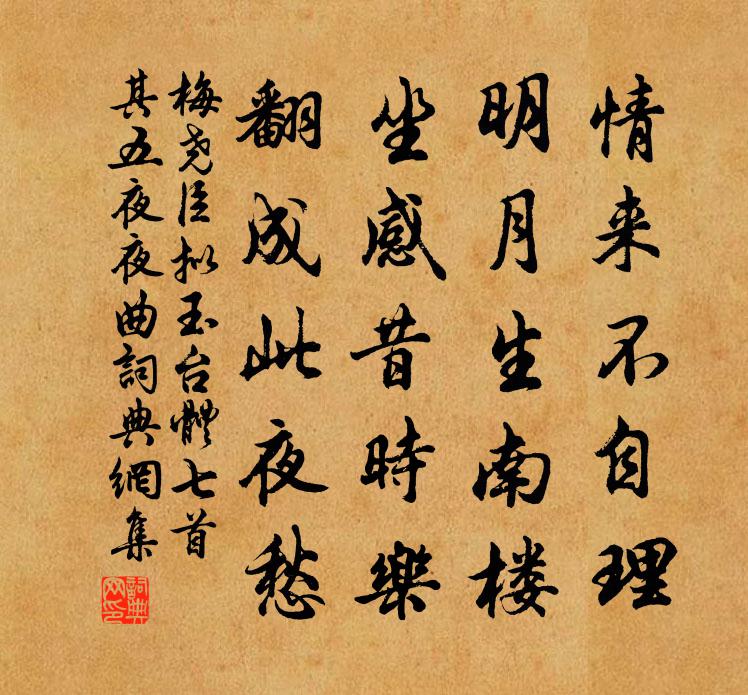 情来不自理
明月生南楼
坐感昔時樂
翻成此夜愁
梅尧臣拟玉台體七首
其五夜夜曲詞典網集
詞典網印